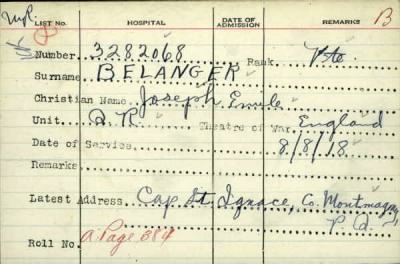 LIST No. HOSPITAL DATE OF ADMISSION REMARKS B
Number 3282068 Rank Pte.
Surname BELANGER
Christian Name Joseph Emile
Unit Q R. Theatre of War England
Date of Service 8/8/18
Remarks
Latest Address Cap St. Ignace, Co. Montmagny
P.Q.
Roll No. a. Page 384